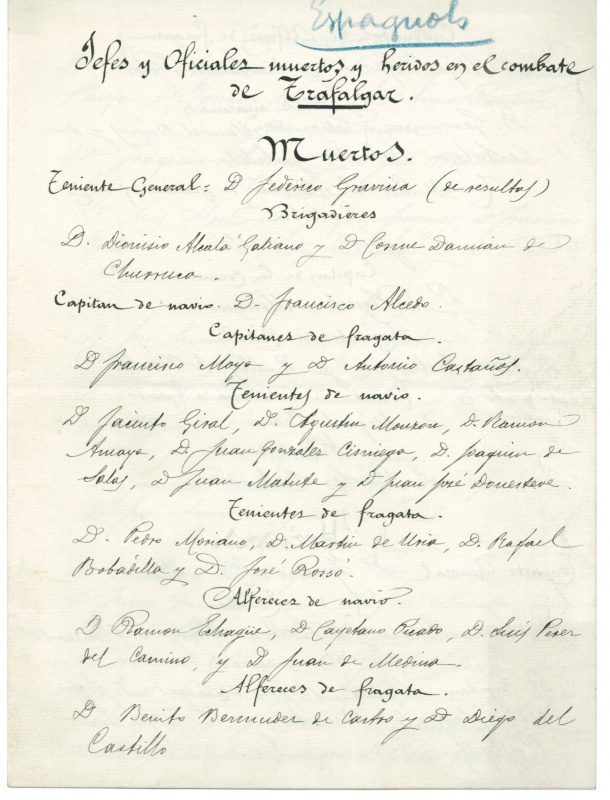 Espagnols
Jefes y Oficiales muertos y heridos en el combate
de Trafalgar.
Muertos.
Teniente General: D Federico Gravina (de resultas)
Brigadieres
D. Dionisio Alcalá Galiano y D Cosme Damian de
Churruca.
Capitan de navio. D. Francisco Alcedo.
Capitanes de fragata.
D Francisco Moyo y D Antonio Castaños.
Tenientes de navio.
D Jacinto Giral, D. Agustin Monzon, D. Ramon
Amaya, D. Juan Gonzalez Cisniega, D. Joaquin de
Salas, D Juan Matute y D Juan José Donesteve.
Tenientes de fragata.
D. Pedro Moriano, D. Martin de Uria, D. Rafael
Bobadilla y D. José Rossó.
Alfereces de navio.
D Ramon Echagüe, D Cayetano Picado, D. Luis Perez
del Camino, y D Juan de Medina.
Alfereces de fragata.
D Benito Bermudez de Castro y D Diego del
Castillo